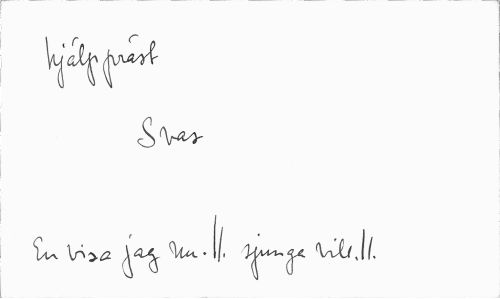 hjälppräst
Svas
En visa jag nu .||. sjunga vill .||.